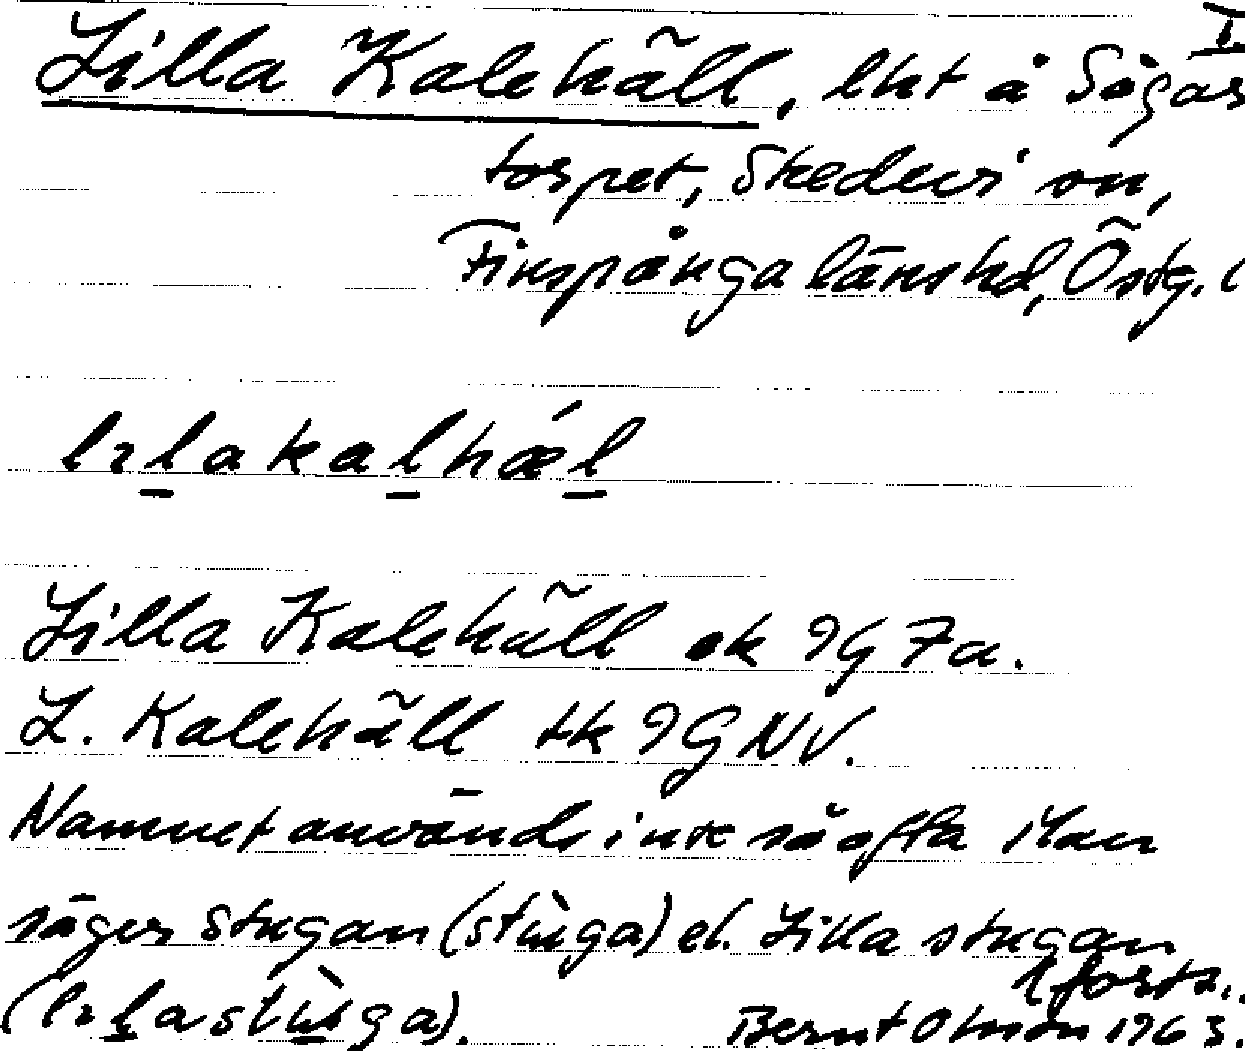 I
Lilla Kalehäll, lht å Sågar
torpet, Skedevi sn,
Finspånga länshd, Östg. l
lılakalhǽl
Lilla Kalehäll ek 9G7a.
L. Kalehäll tk 9GNV.
Namnet används inte så ofta Man
säger Stugan (stùga) el. Lilla stugan
(forts..
(lılastùga). Bernt Olmon 1963.